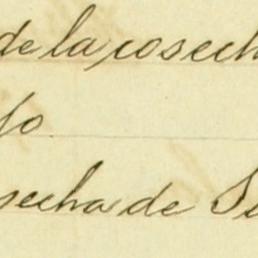 de la cosech
fo
secha de Si